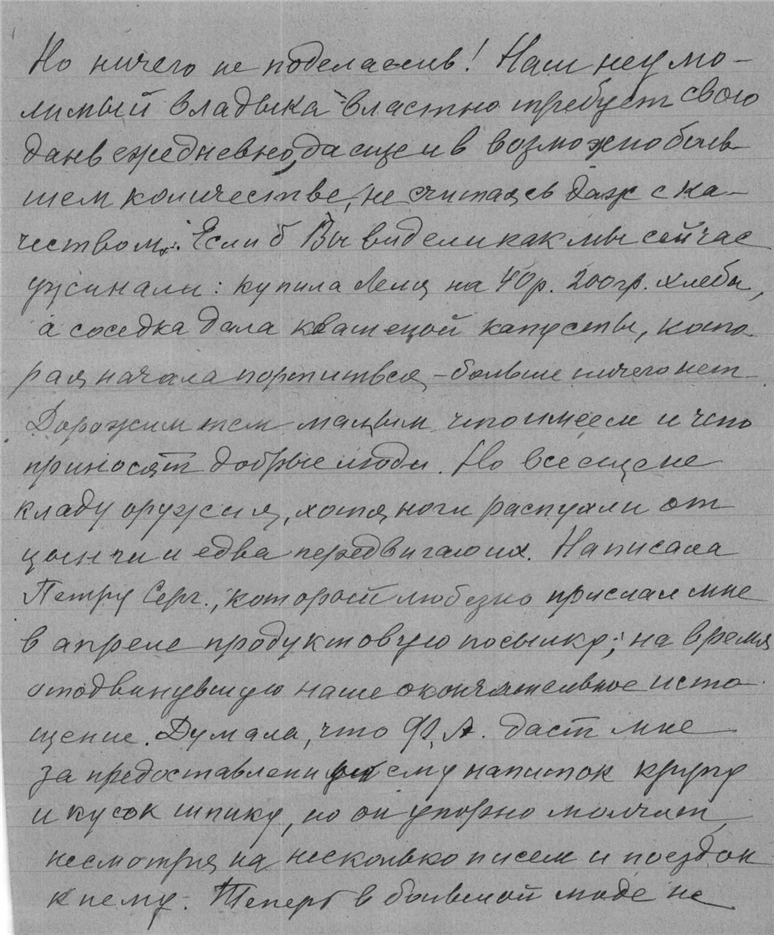 Но ничего не поделаешь! Наш неумо-
лимый владыка властно требует свою
дань ежедневно, да еще и в возможно боль-
шем количестве, не считаясь даж с ка-
чеством. Если б Вы видели как мы сейчас
ужинали: купила Леля на 40р. 200гр. хлеба,
а соседка дала квашеной капусты, кото-
рая начала портиться – больше ничего нет
Дорожим тем малым что имеем и что
приносят добрые люди. Но все еще не
кладу оружия, хотя ноги распухли от
цынги и едва передвигаю их. Написала
Петру Серг., который любезно прислал мне
в апреле продуктовую посылку, на время
отодвинувшую наше окончательное исто-
щение. Думала, что Ф. А. даст мне
за предоставленный ему напиток крупу
и кусок шпику, но он упорно молчит,
несмотря на несколько писем и поездок
к нему. Теперь в большой моде не